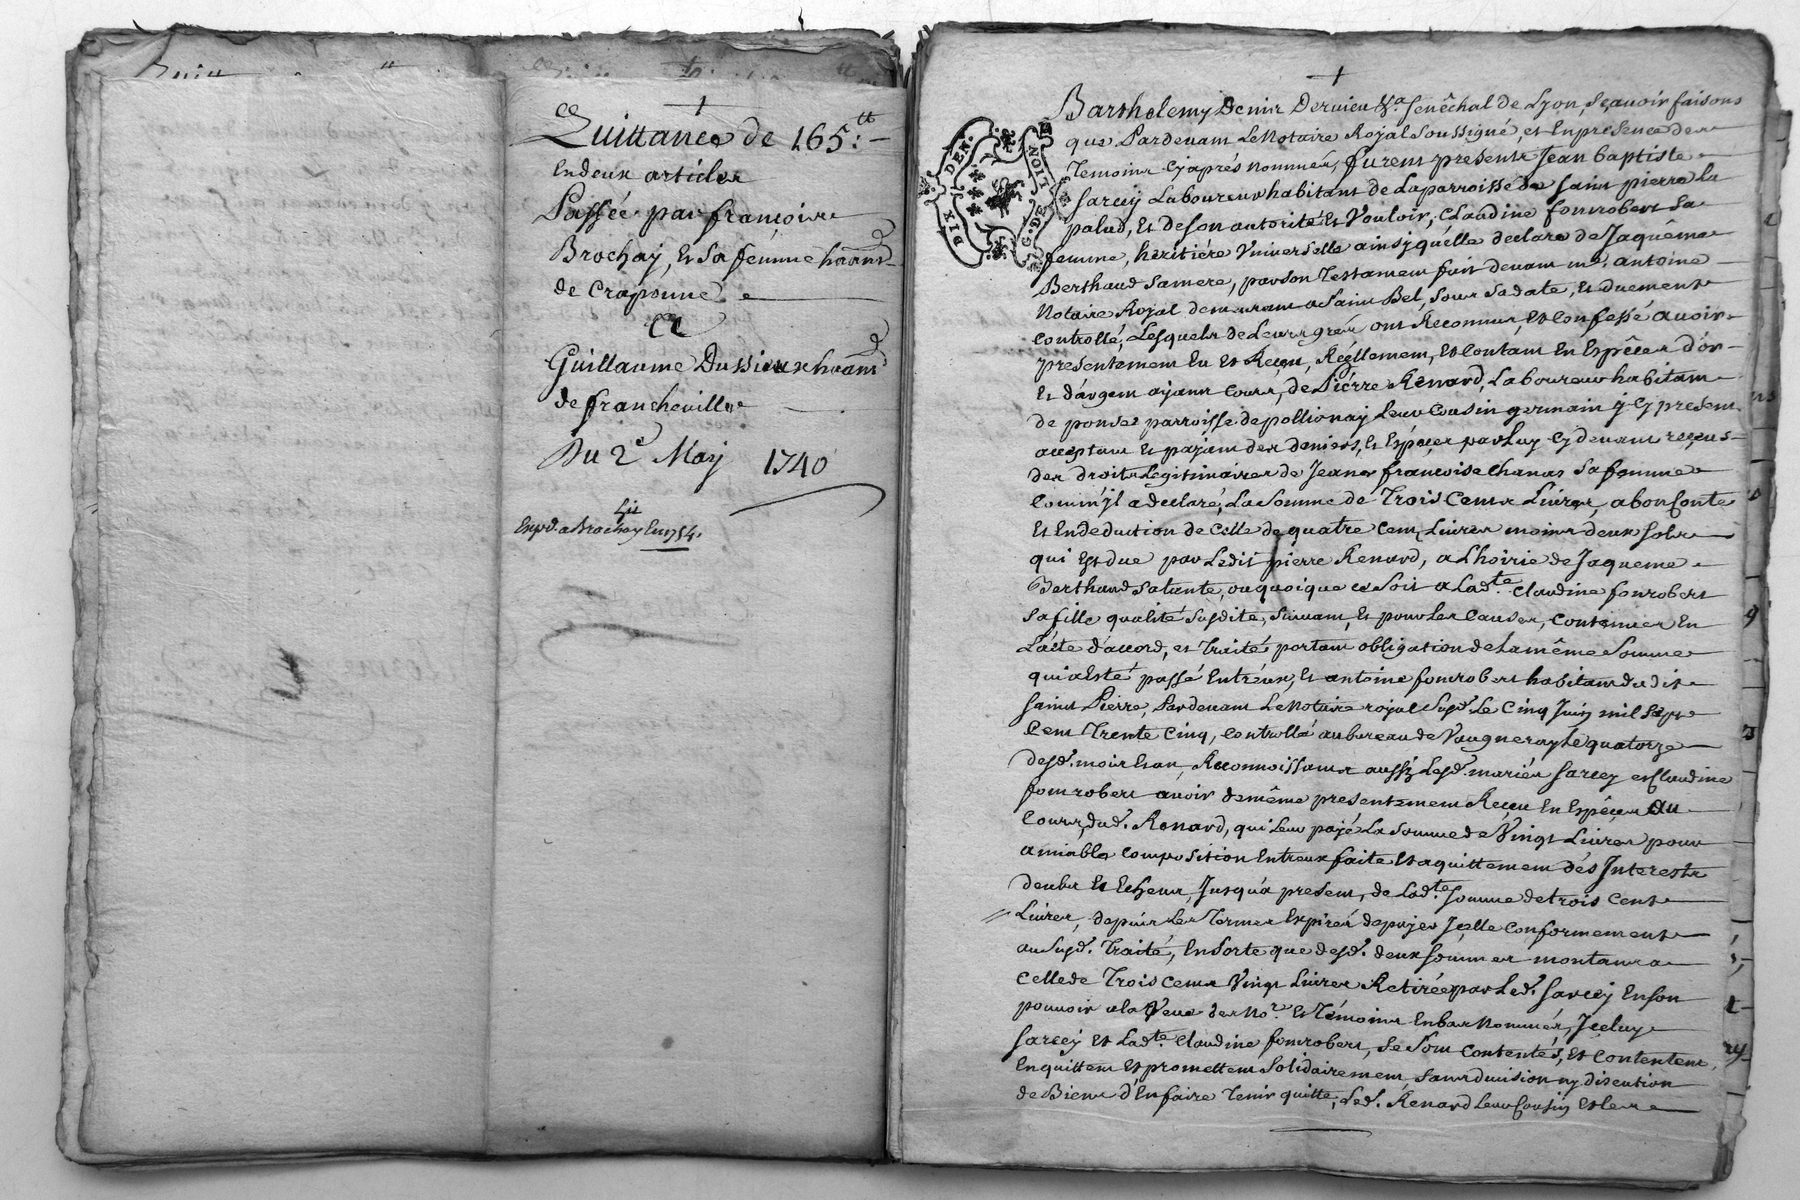 +
Quittance de 165:tt
En deux articles
Passée par françoise
Brochaÿ, Et Sa femme
de Craponne
Et
Guillaume Dussieux
de francheville
Du 2e May 1740
Expd. a Brochay En 1754.
+
DIX DEN.
G. DE LION
Barthelemy Denis Dervieu &a. Senêchal de Lyon, sçavoir faisons
que Pardevant Le Notaire Royal Soussigné, et En presence des
Temoins Cy aprés nommés, furent presents Jean Baptiste
Sarcey Laboureur habitant de La parroisse de Saint pierre la
palud, Et de son autorité Et Vouloir, Claudine fonrobert Sa
femme, hèritiére Universelle ainsy qu'elle declare de Jaquême
Berthaud Sa mere, par son Testament fait devant me. antoine
Notaire Royal demeurant a Saint Bel, sous Sa date, Et duement
Controllé, Lesquels de Leurs grés ont Reconnus, Et Confessé avoir
presentement Eu Et Reçu, Réellement, Et Contant En Espêces d'or
Et d'argent ayant cours, de Piérre Renard, Laboureur habitant
de parroisse de pollionay Leur Cousin germain y Cy present
acceptant Et payant des deniers, Et Espéces par Luy Cy devant reçeus
des droits Légitimaires de Jeanne françoise Chanas Sa femme
Comm'jl a declaré, La Somme de Trois Cents Livres, a bon Conte
Et En deduction de Celle de quatre Cent Livres moins deux sols
qui Est due par Ledit pierre Renard, a L'hoirie de Jaqueme
Berthaud Sa tante, ou quoique ce Soit a Ladte. Claudine fonrobert
Sa fille qualité Susdite, Suivant, Et pour Les Causes, Contenues En
L'acte d'accord, et Traité portant obligation de La même Somme
qui a Esté passé Entr'eux, Et antoine fonrobert habitant dudit
Saint Pierre, Pardevant Le Notaire royal Susd. Le Cinq Juin mil Sept
Cent Trente Cinq, Controllé au bureau de Vaugneray Le quatorze
desd. mois Et an, Reconnoissants aussy Lesd. mariés Sarcey et Claudine
fonrobert avoir de même presentement Reçeu En Espêces au
Cours, dud. Renard, qui Leur a payé La Somme de Vingt Livres pour
amiable composition Entreux faite Et aquittement dés Interests
deubs Et Echeus, Jusqu'a present, de Ladte. Somme de trois Cents
Livres, depuis Les Termes Expirés de payer Jcelle Conformement
au Susd. Traité, En Sorte que desd. deux Sommes montants a
Celle de Trois Cents Vingt Livres Retirée par Led. Sarcey En Son
pouvoir a la Veue des Nore. Et Témoins En bas Nommés, Jceluy
Sarcey Et Ladte. Claudine fonrobert, Se Sont Contentés, Et Contentent,
En quittent Et promettent Solidairement, Sans division ny discution
de Biens d'En faire Tenir quitte, Led. Renard Leur Cousin Et Les